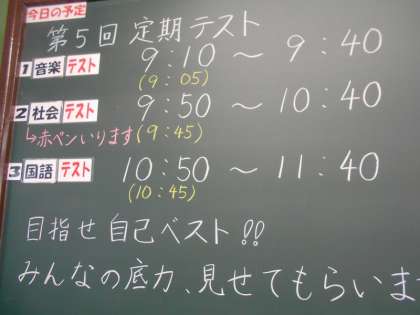 今日の予定
第5回 定期テスト
1 音楽 テスト 9:10 〜 9:40
(9:05)
2 社会 テスト 9:50 〜 10:40
↳赤ペンいります (9:45)
3 国語 テスト 10:50 〜 11:40
(10:45)
目指せ 自己ベスト!!
みんなの底力、見せてもらいま